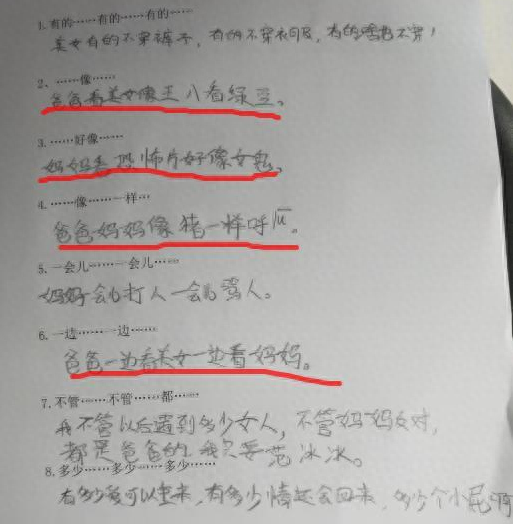 1.有的……有的……有的……
美女有的不穿裤子，有的不穿衣服，有的啥也不穿！
2、……像……
爸爸看美女像王八看绿豆。
3.……好像……
妈妈是恐怖片好像女鬼。
4.……像……一样…
爸爸妈妈像猪一样呼
5.一会儿……一会儿……
妈妈一会儿打人一会儿骂人。
6.一边……一边……
爸爸一边看美女一边看妈妈。
7.不管……不管……都……
我不管以后遇到多少女人，不管妈妈反对，
都是爸爸的我只要范冰冰。
8.多少……多少…多少……
有多少爱可以重来，有多少情还会回来，多少个小屁